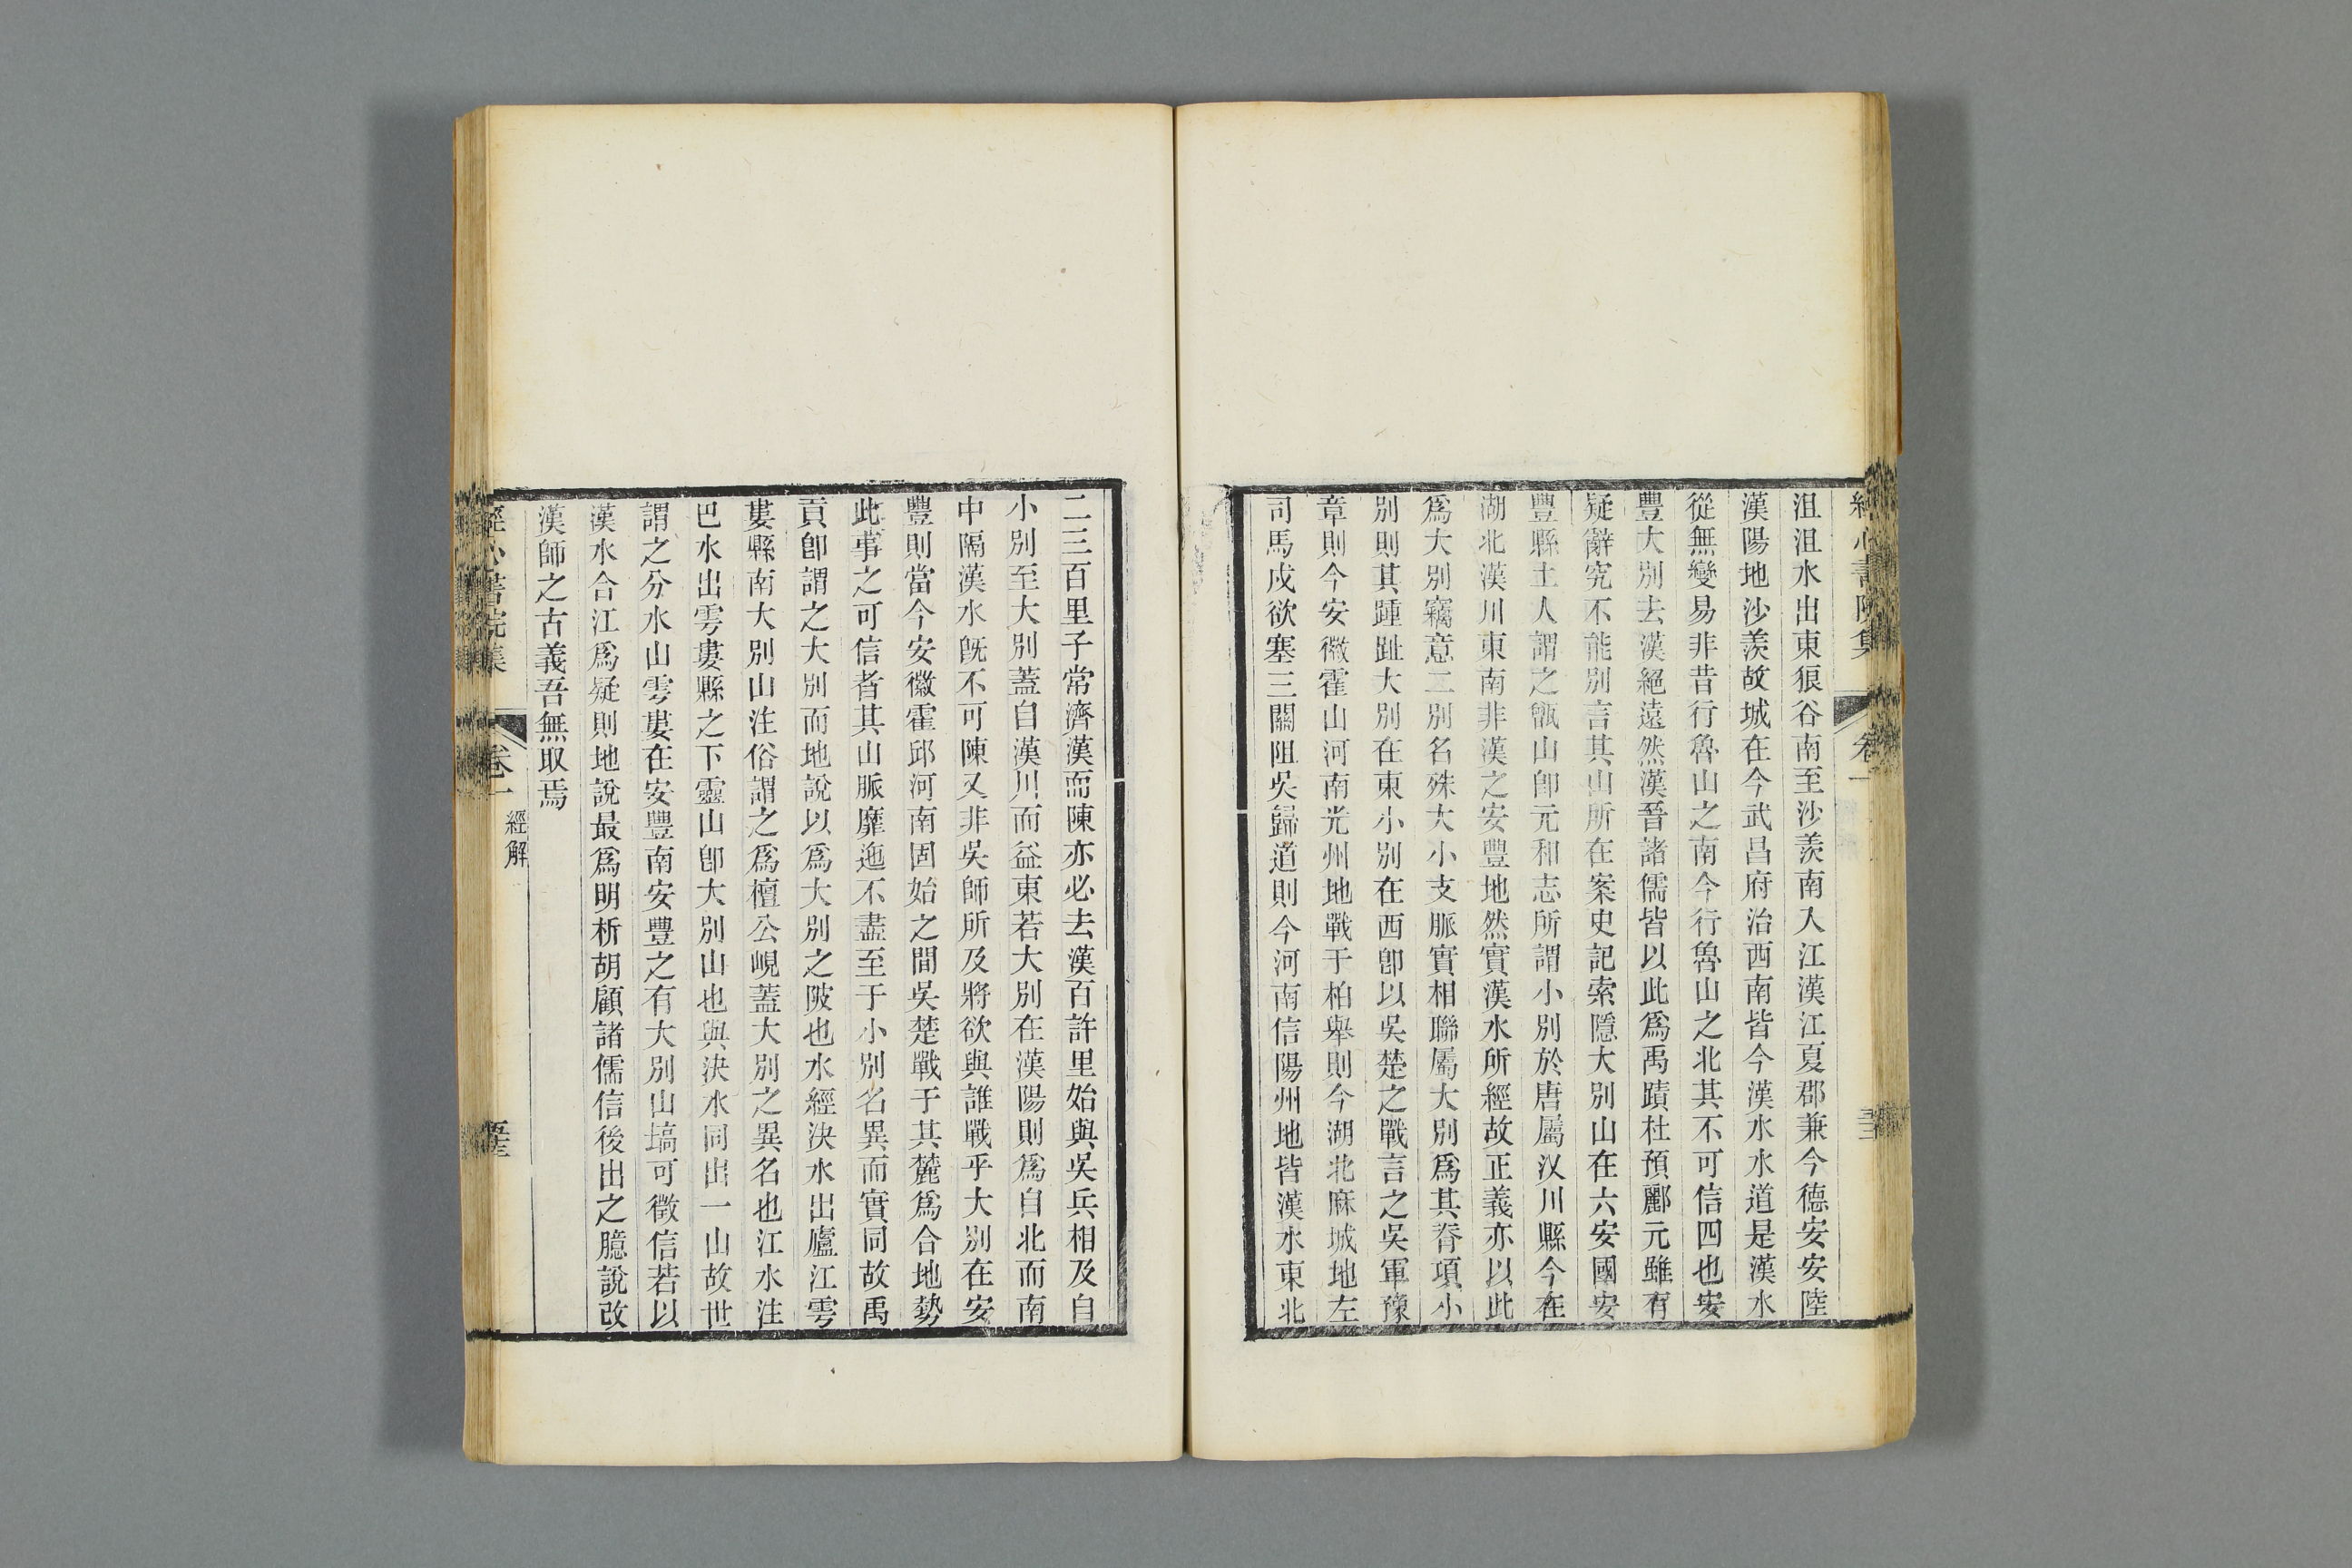 經心書院集
卷一
沮沮水出東狼谷南至沙羨南入江漢江夏郡兼今德安安陸
漢陽地沙羨故城在今武昌府治西南皆今漢水水道是漢水
從無變易非昔行魯山之南今行魯山之北其不可信四也安
豐大別去漢絕遠然漢晉諸儒皆以此爲禹蹟杜預酈元雖有
疑辭究不能別言其山所在案史記索隱大別山在六安國安
豐縣土人謂之甑山卽元和志所謂小別於唐屬汊川縣今在
湖北漢川東南非漢之安豐地然實漢水所經故正義亦以此
爲大別竊意二別名殊大小支脈實相聯屬大別爲其脊項小
別則其踵趾大別在東小別在西卽以吳楚之戰言之吳軍豫
章則今安徽霍山河南光州地戰于柏舉則今湖北麻城地左
司馬戌欲塞三關阻吳歸道則今河南信陽州地皆漢水東北
二三百里子常濟漢而陳亦必去漢百許里始與吳兵相及自
小別至大別蓋自漢川而益東若大別在漢陽則爲自北而南
中隔漢水既不可陳又非吳師所及將欲與誰戰乎大別在安
豐則當今安徽霍邱河南固始之間吳楚戰于其麓爲合地勢
此事之可信者其山脈靡迤不盡至于小別名異而實同故禹
貢卽謂之大別而地說以爲大別之陂也水經決水出廬江雩
婁縣南大別山注俗謂之爲檀公峴蓋大別之異名也江水注
巴水出雩婁縣之下靈山卽大別山也與決水同出一山故世
謂之分水山雩婁在安豐南安豐之有大別山塙可徵信若以
漢水合江爲疑則地說最爲明析胡顧諸儒信後出之臆說改
漢師之古義吾無取焉
經心書院集
卷一
經解